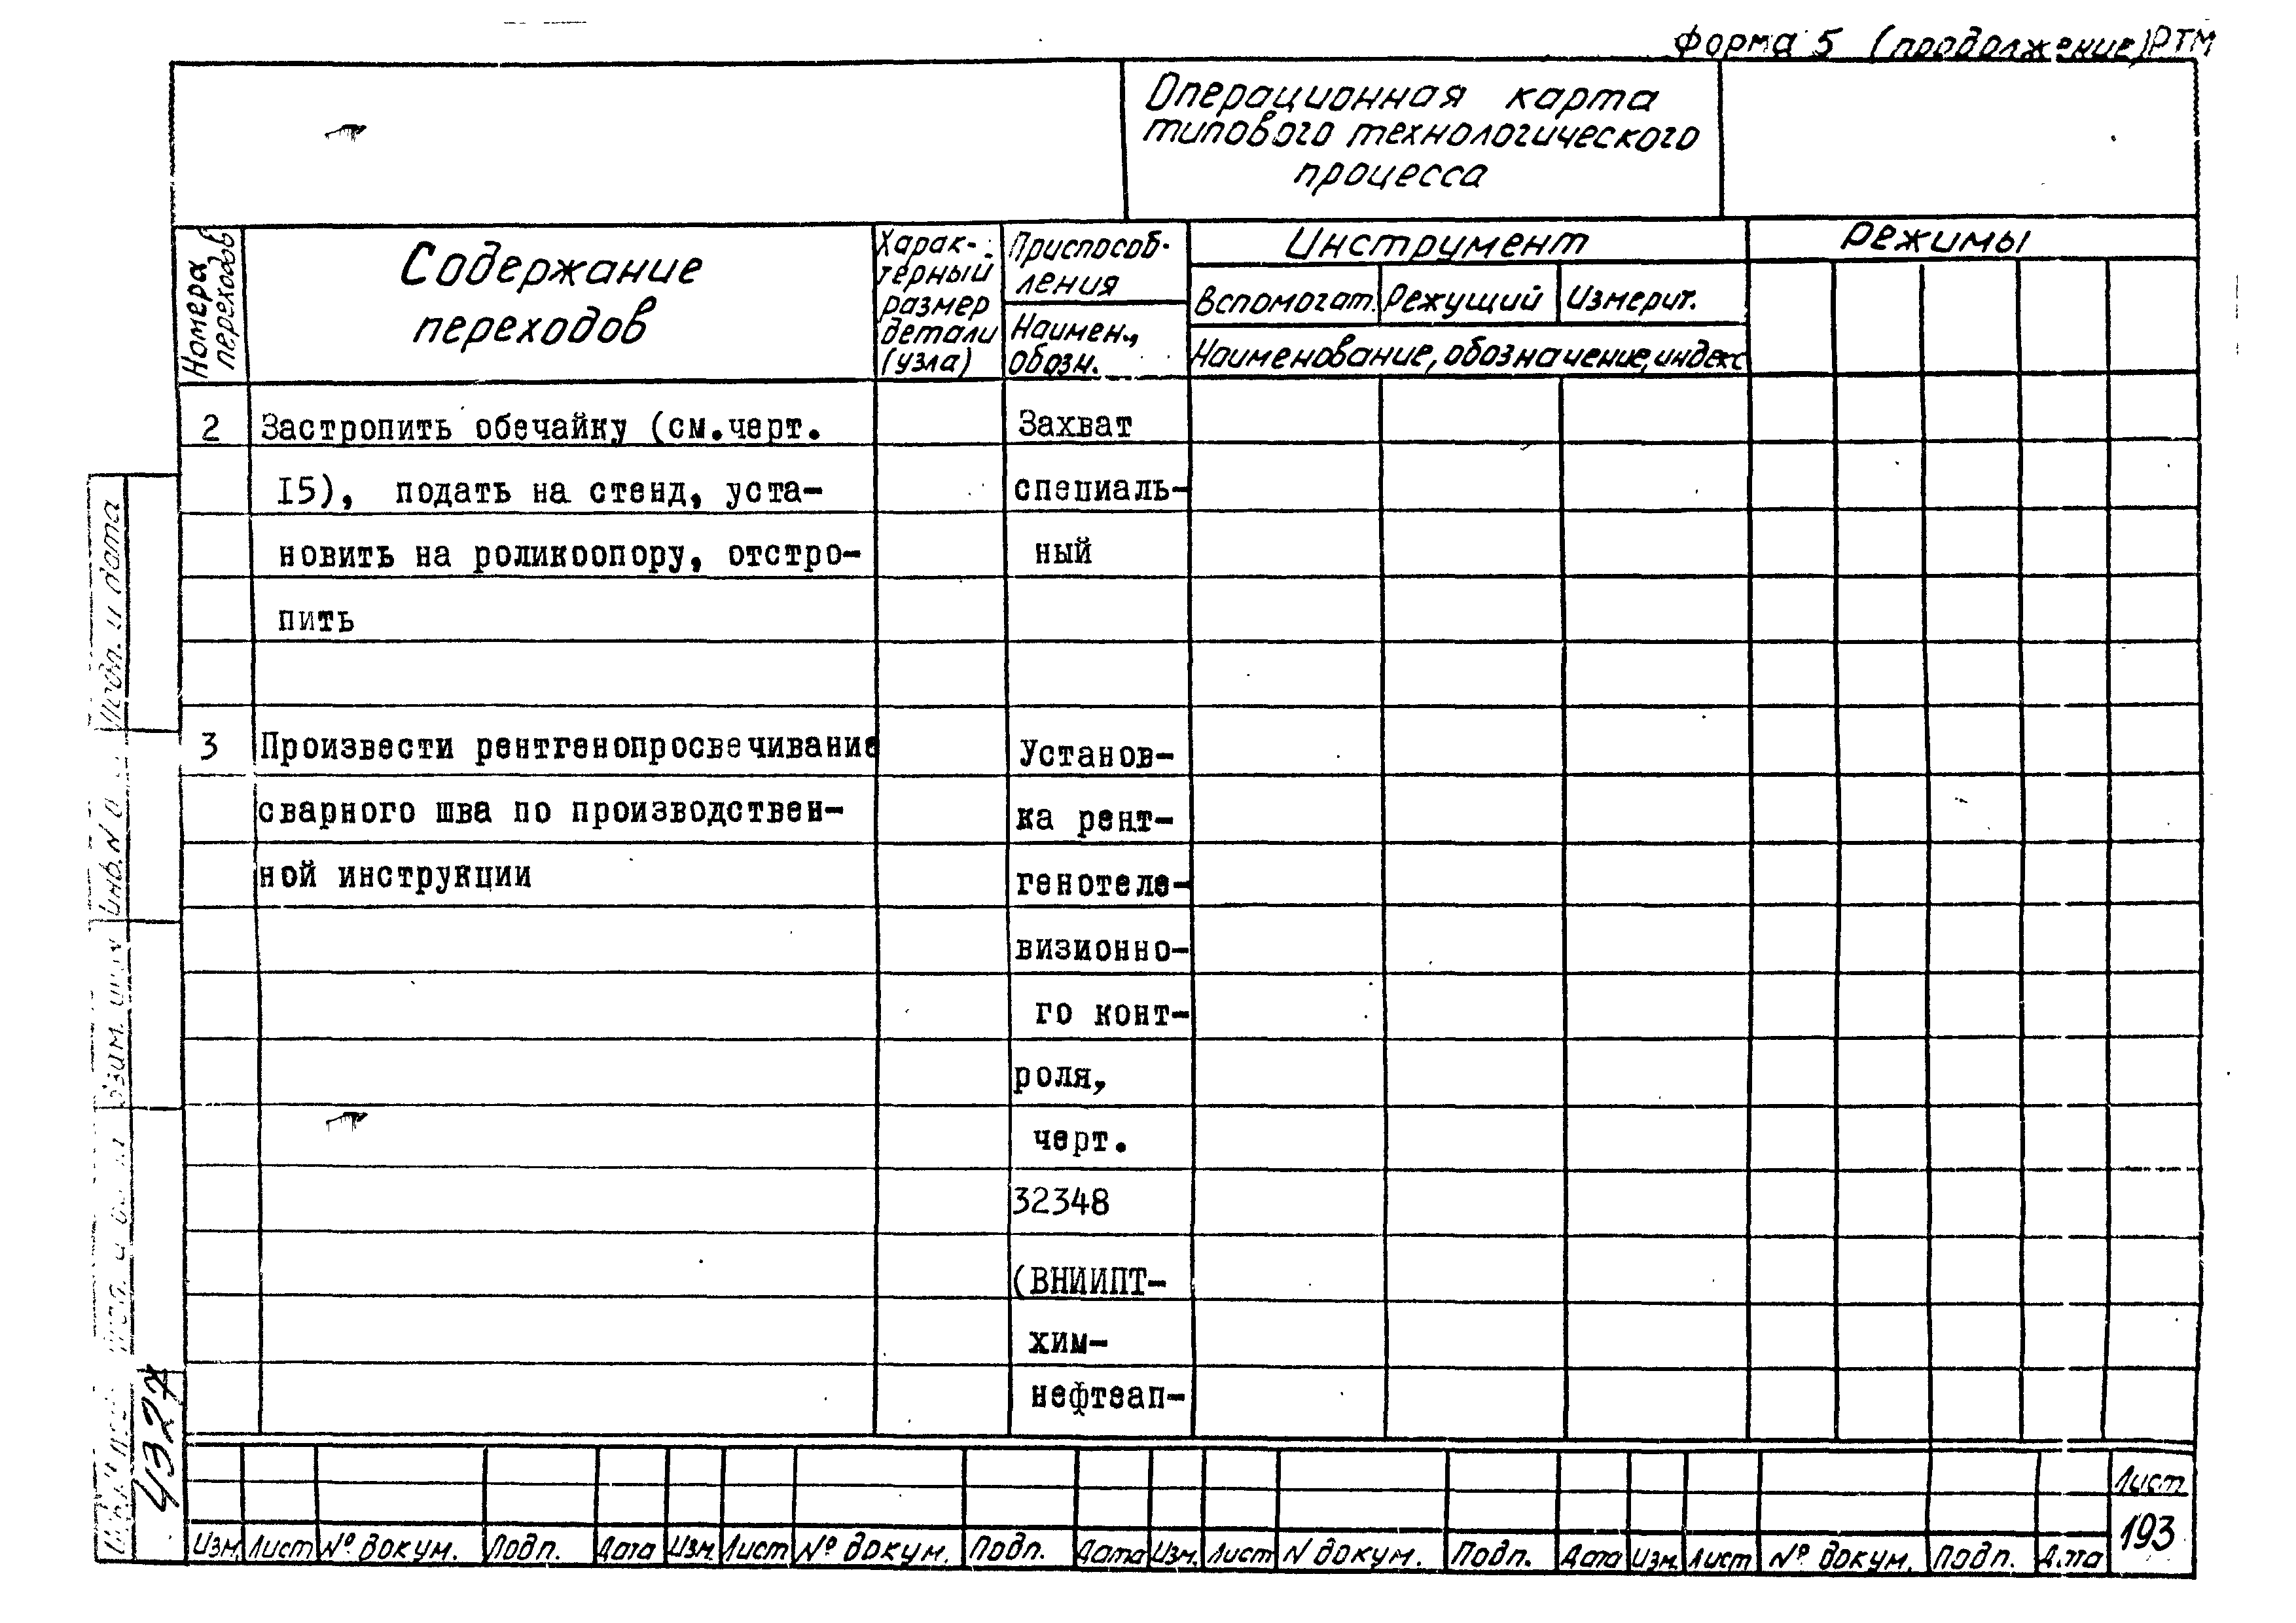 Форма 5 (продолжение) РТМ
Операционная карта
типового технологического
процесса
Номера
переходов
Содержание
переходов
Харак-
терный
размер
детали
(узла)
Приспособ-
ления
Наимен.,
обозн.
Инструмент
Вспомогат. Режущий Измерит.
Наименование, обозначение, индекс
Режимы
2 Застропить обечайку (см.черт. Захват
I5), подать на стенд, уста- специаль-
новить на роликоопору, отстро- ный
пить
3 Произвести рентгенопросвечивание Установ-
сварного шва по производствен- ка рент-
ной инструкции генотеле-
визионно-
го конт-
роля,
черт.
32348
(ВНИИПТ-
хим-
нефтеап-
Подп. и дата
Инв. №
Взам. инв
4327
Лист
193
Изм. Лист № докум. Подп. Дата Изм. Лист № докум. Подп. Дата Изм. Лист N докум. Подп. Дата Изм. Лист № докум. Подп. Дата